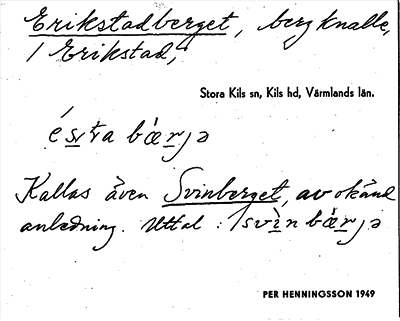 Erikstadberget, bergknalle,
i Erikstad,
Stora Kils sn, Kils hd, Värmlands län.
bæ̀rjə
Kallas även Svinberget, av okänd
anledning. Uttal: svìnbæ̀rjə
PER HENNINGSSON 1949